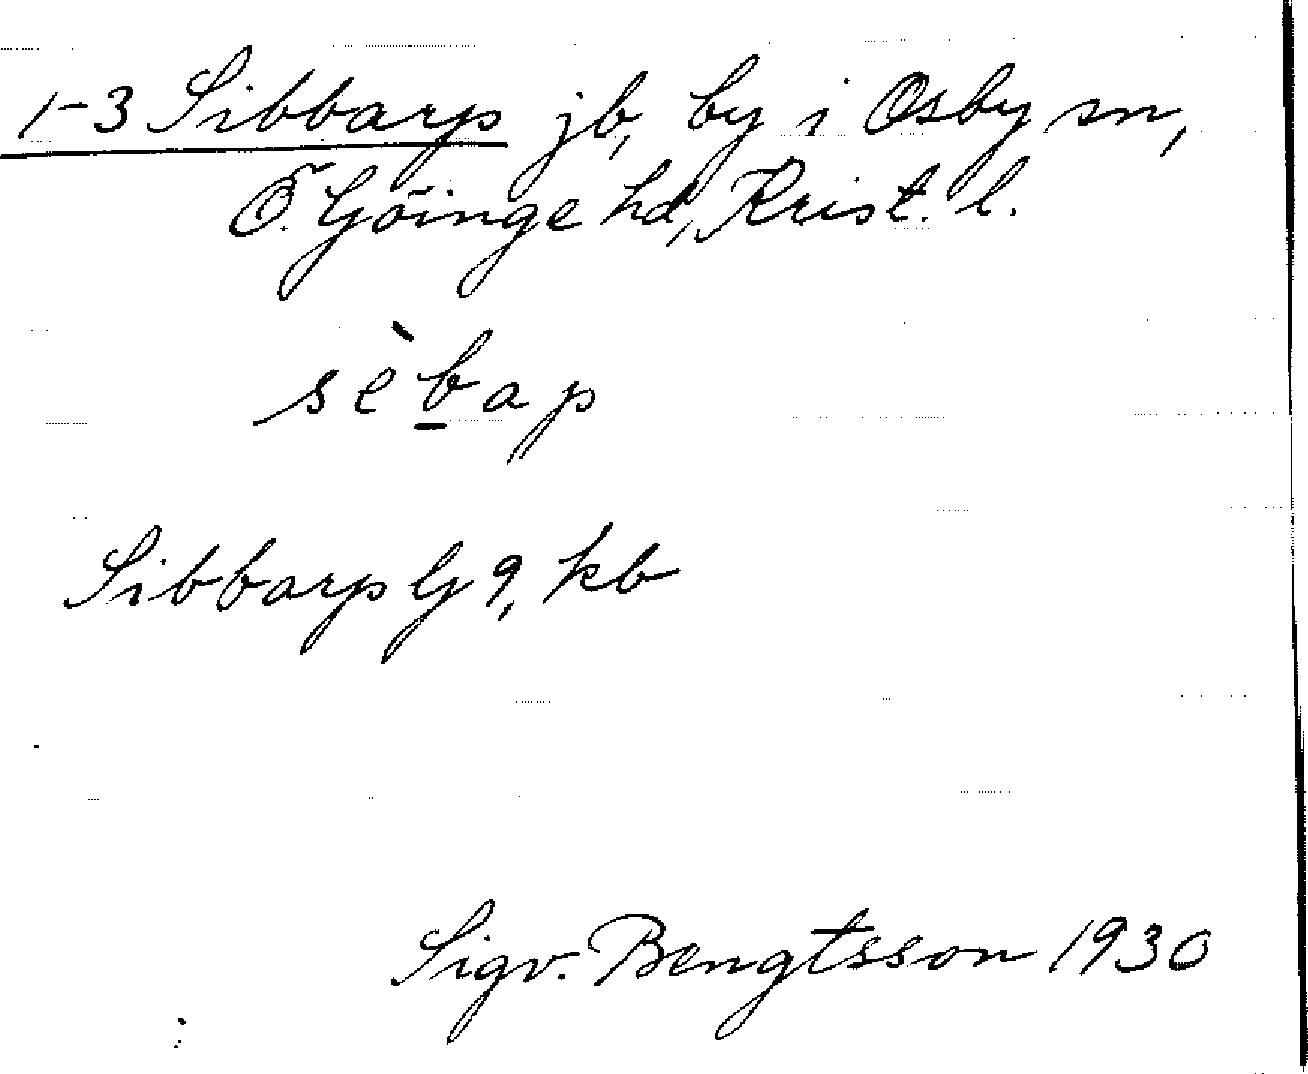 1-3 Sibbarp jb, by i Osby sn,
Ö. Göinge hd, Krist. l.
sèbap
Sibbarp G 9, kb
Sigv. Bengtsson 1930